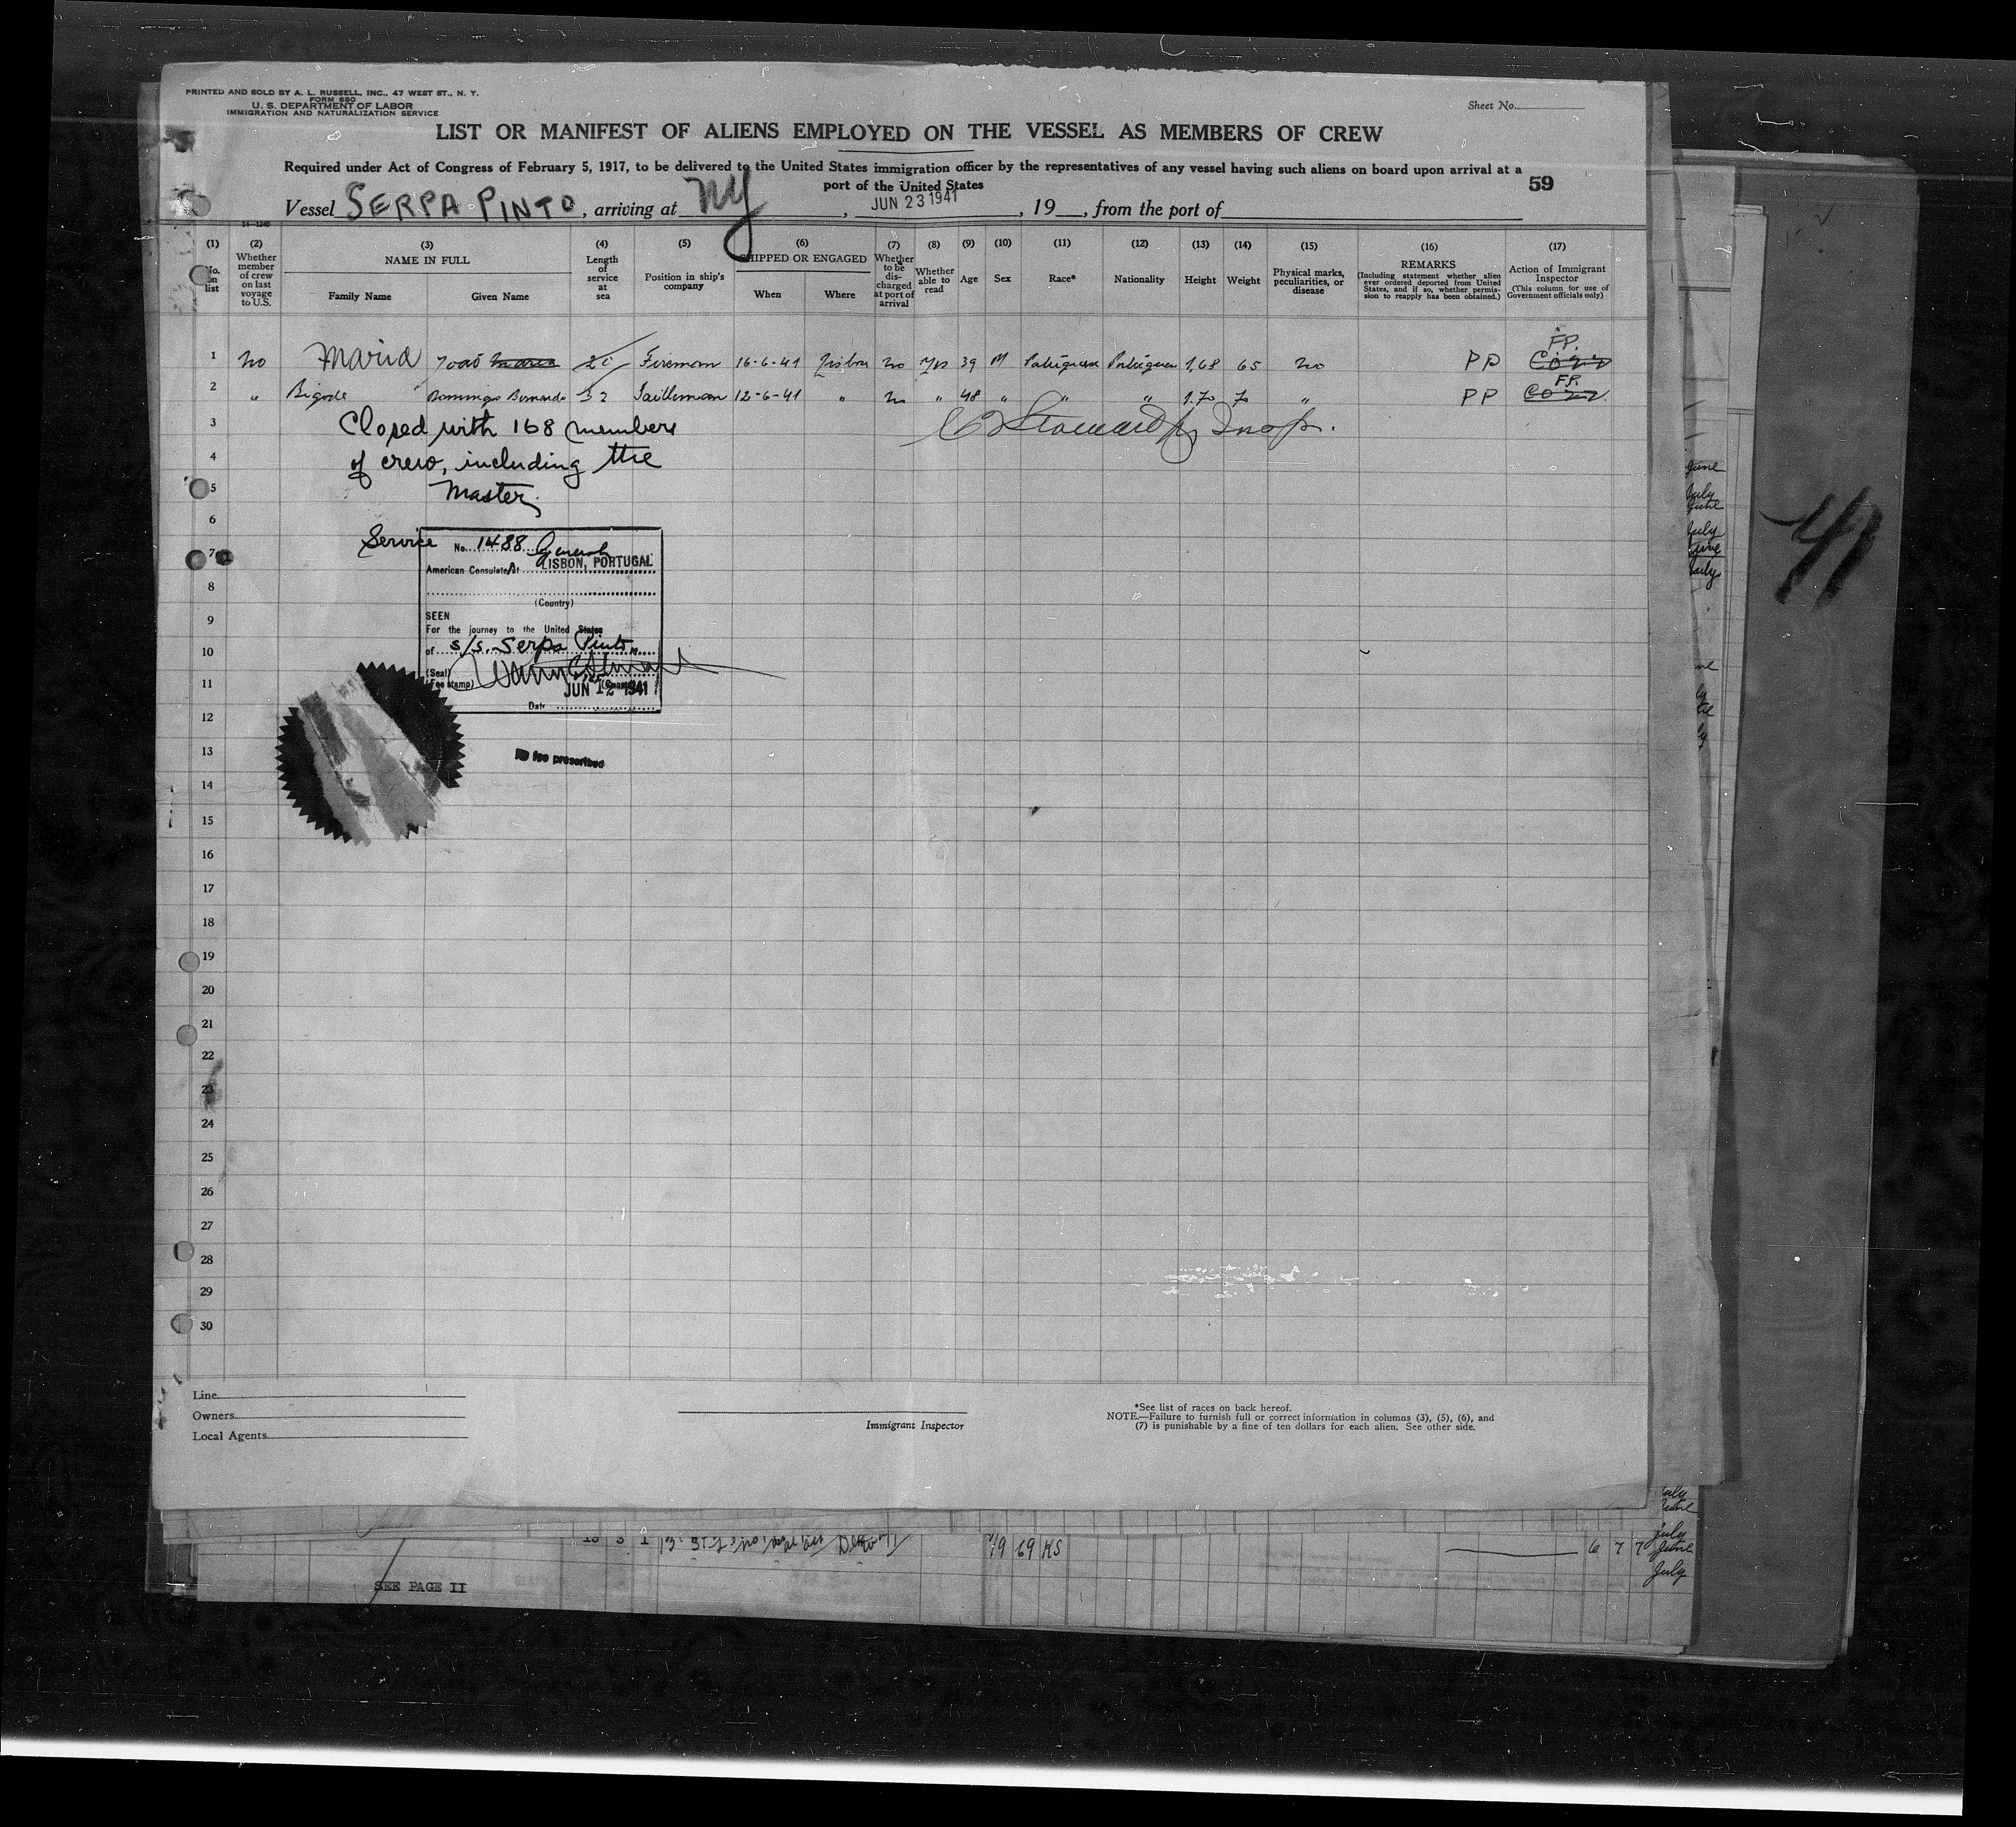 PRINTED AND SOLD BY A. L. RUSSELL, INC., 47 WEST ST., N. Y.
FORM 680
U. S. DEPARTMENT OF LABOR
IMMIGRATION AND NATURALIZATION SERVICE
Sheet No.
LIST OR MANIFEST OF ALIENS EMPLOYED ON THE VESSEL AS MEMBERS OF CREW
Required under Act of Congress of February 5, 1917, to be delivered to the United States immigration officer by the representatives of any vessel having such aliens on board upon arrival at a
port of the United States
59
Vessel SERPA PINTO, arriving at NY, JUN 23 1941, 19__, from the port of
14-1240
(1) (2) (3) (4) (5) (6) (7) (8) (9) (10) (11) (12) (13) (14) (15) (16) (17)
No. in list
Whether member of crew on last voyage to U.S.
NAME IN FULL
Family Name Given Name
Length of service at sea
Position in ship's company
SHIPPED OR ENGAGED
When Where
Whether to be discharged at port of arrival
Whether able to read
Age
Sex
Race*
Nationality
Height
Weight
Physical marks, peculiarities, or disease
REMARKS
(Including statement whether alien ever ordered deported from United States, and if so, whether permission to reapply has been obtained.)
Action of Immigrant Inspector
(This column for use of Government officials only)
FP.
1 no Maria João Maria Fireman 16-6-41 Lisbon no Yes 39 M Portuguese Portuguese 1,68 65 no PP
FP.
2 " Bigode Domingos Bernardo 32 12-6-41 " no " 48 " " " 1.70 70 " PP
3 Closed with 168 members
4 of crew, including the
5 Master.
6
7 Service No. 1488 General
American Consulate At LISBON, PORTUGAL
8
(Country)
9 SEEN
For the journey to the United States
10 of s/s. Serpa Pinto
(Seal)
(Fee stamp)
11 JUN 12 1941
Date
12
13 No fee prescribed
14
15
16
17
18
19
20
21
22
23
24
25
26
27
28
29
30
Line
Owners
Local Agents
Immigrant Inspector
*See list of races on back hereof.
NOTE.—Failure to furnish full or correct information in columns (3), (5), (6), and
(7) is punishable by a fine of ten dollars for each alien. See other side.
41
June
July
June
July
June
July
July
June
July
June
July
SEE PAGE II